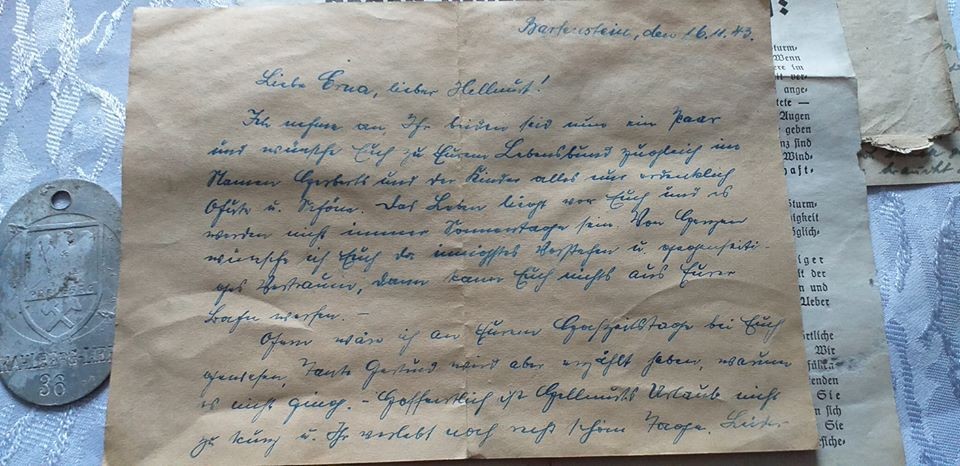 Bartenstein, den 16.11.43.
Liebe Erna, lieber Hellmut!
Ich nehme an, Ihr beiden seid nun ein Paar
und wünsche Euch zu Eurem Lebensbund zugleich im
Namen Gerberts und der Kinder alles nur erdenklich
Gute u. Schöne. Das Leben liegt vor Euch und es
werden nicht immer Sonnentage sein. Von Herzen
wünsche ich Euch da innigstes Verstehen u. gegenseiti-
ges Vertrauen, dann kann Euch nichts aus Eurer
Bahn werfen. —
Gern wäre ich an Eurem Hochzeitstage bei Euch
gewesen, Tante Gertrud wird aber erzählt haben, warum
es nicht ging. – Hoffentlich ist Hellmuts Urlaub nicht
zu kurz u. Ihr verlebt noch recht schöne Tage. Leider
KAHLBERG-LIEP
36
Sturm-
Wenn
ere im
ver-
ange-
tete —
Augen
geben
nz sind
Wind-
haft-
Sturm-
igkeit
öglich-
olger
t der
und
Ueber
örtliche
Wir
enden
Sie
n sich
Sie